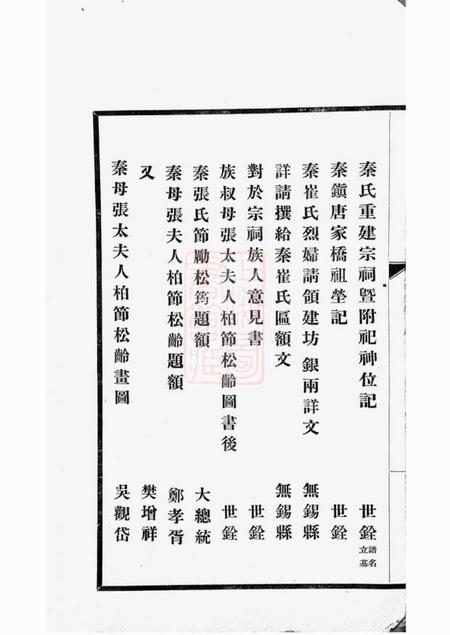 秦氏重建宗祠暨附祀神位記 世銓譜名立基
秦鎮唐家橋祖塋記 世銓
秦崔氏烈婦請領建坊 銀兩詳文 無錫縣
詳請撰給秦崔氏區額文 無錫縣
對於宗祠族人意見書 世銓
族叔母張太夫人柏節松齡圖書後 世銓
秦張氏節勵松筠題額 大總統
秦母張夫人柏節松齡題額 鄭孝胥
又 樊增祥
秦母張太夫人柏節松齡畫圖 吳觀岱